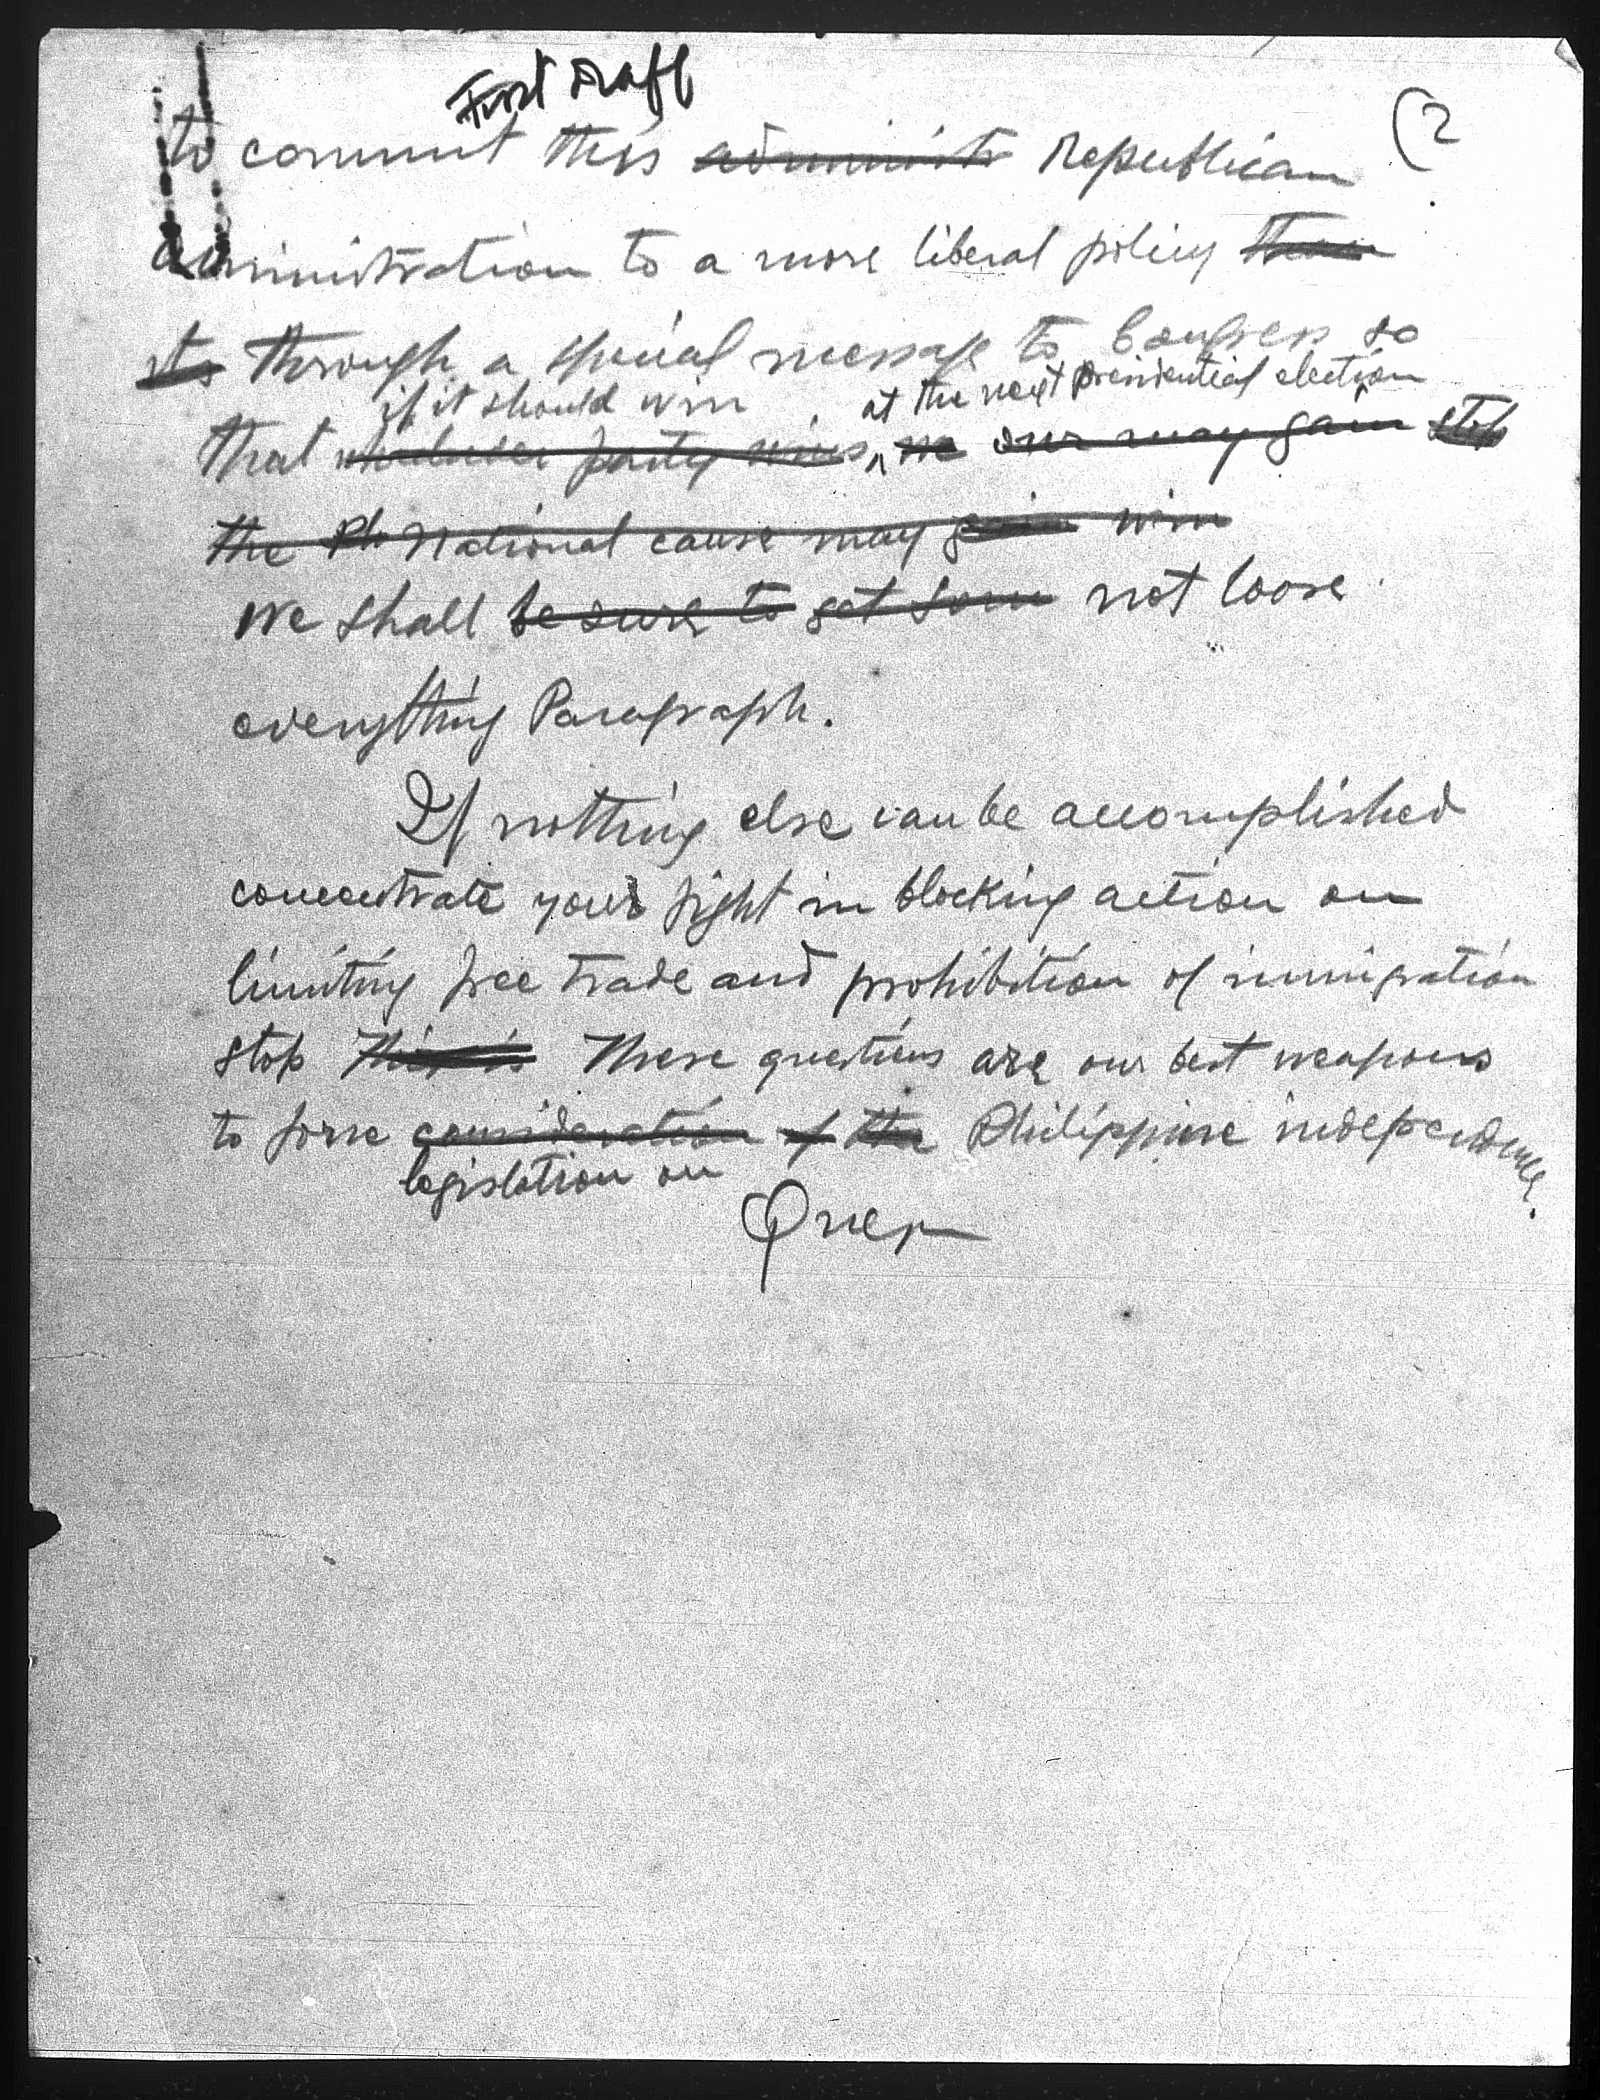 First Draft
(2
to commit this administr Republican
administration to a more liberal policy than
its through a special message to Congress so
if it should win at the next presidential election
that whichever party wins, we our may gain stop
the Ph National cause may gain win
We shall be sure to get some not loose
everything Paragraph.
If nothing else can be accomplished
concentrate your fight in blocking action on
limiting free trade and prohibition of immigration
stop This is These questions are our best weapons
to force consideration of the Philippine independence.
legislation on
Quezon